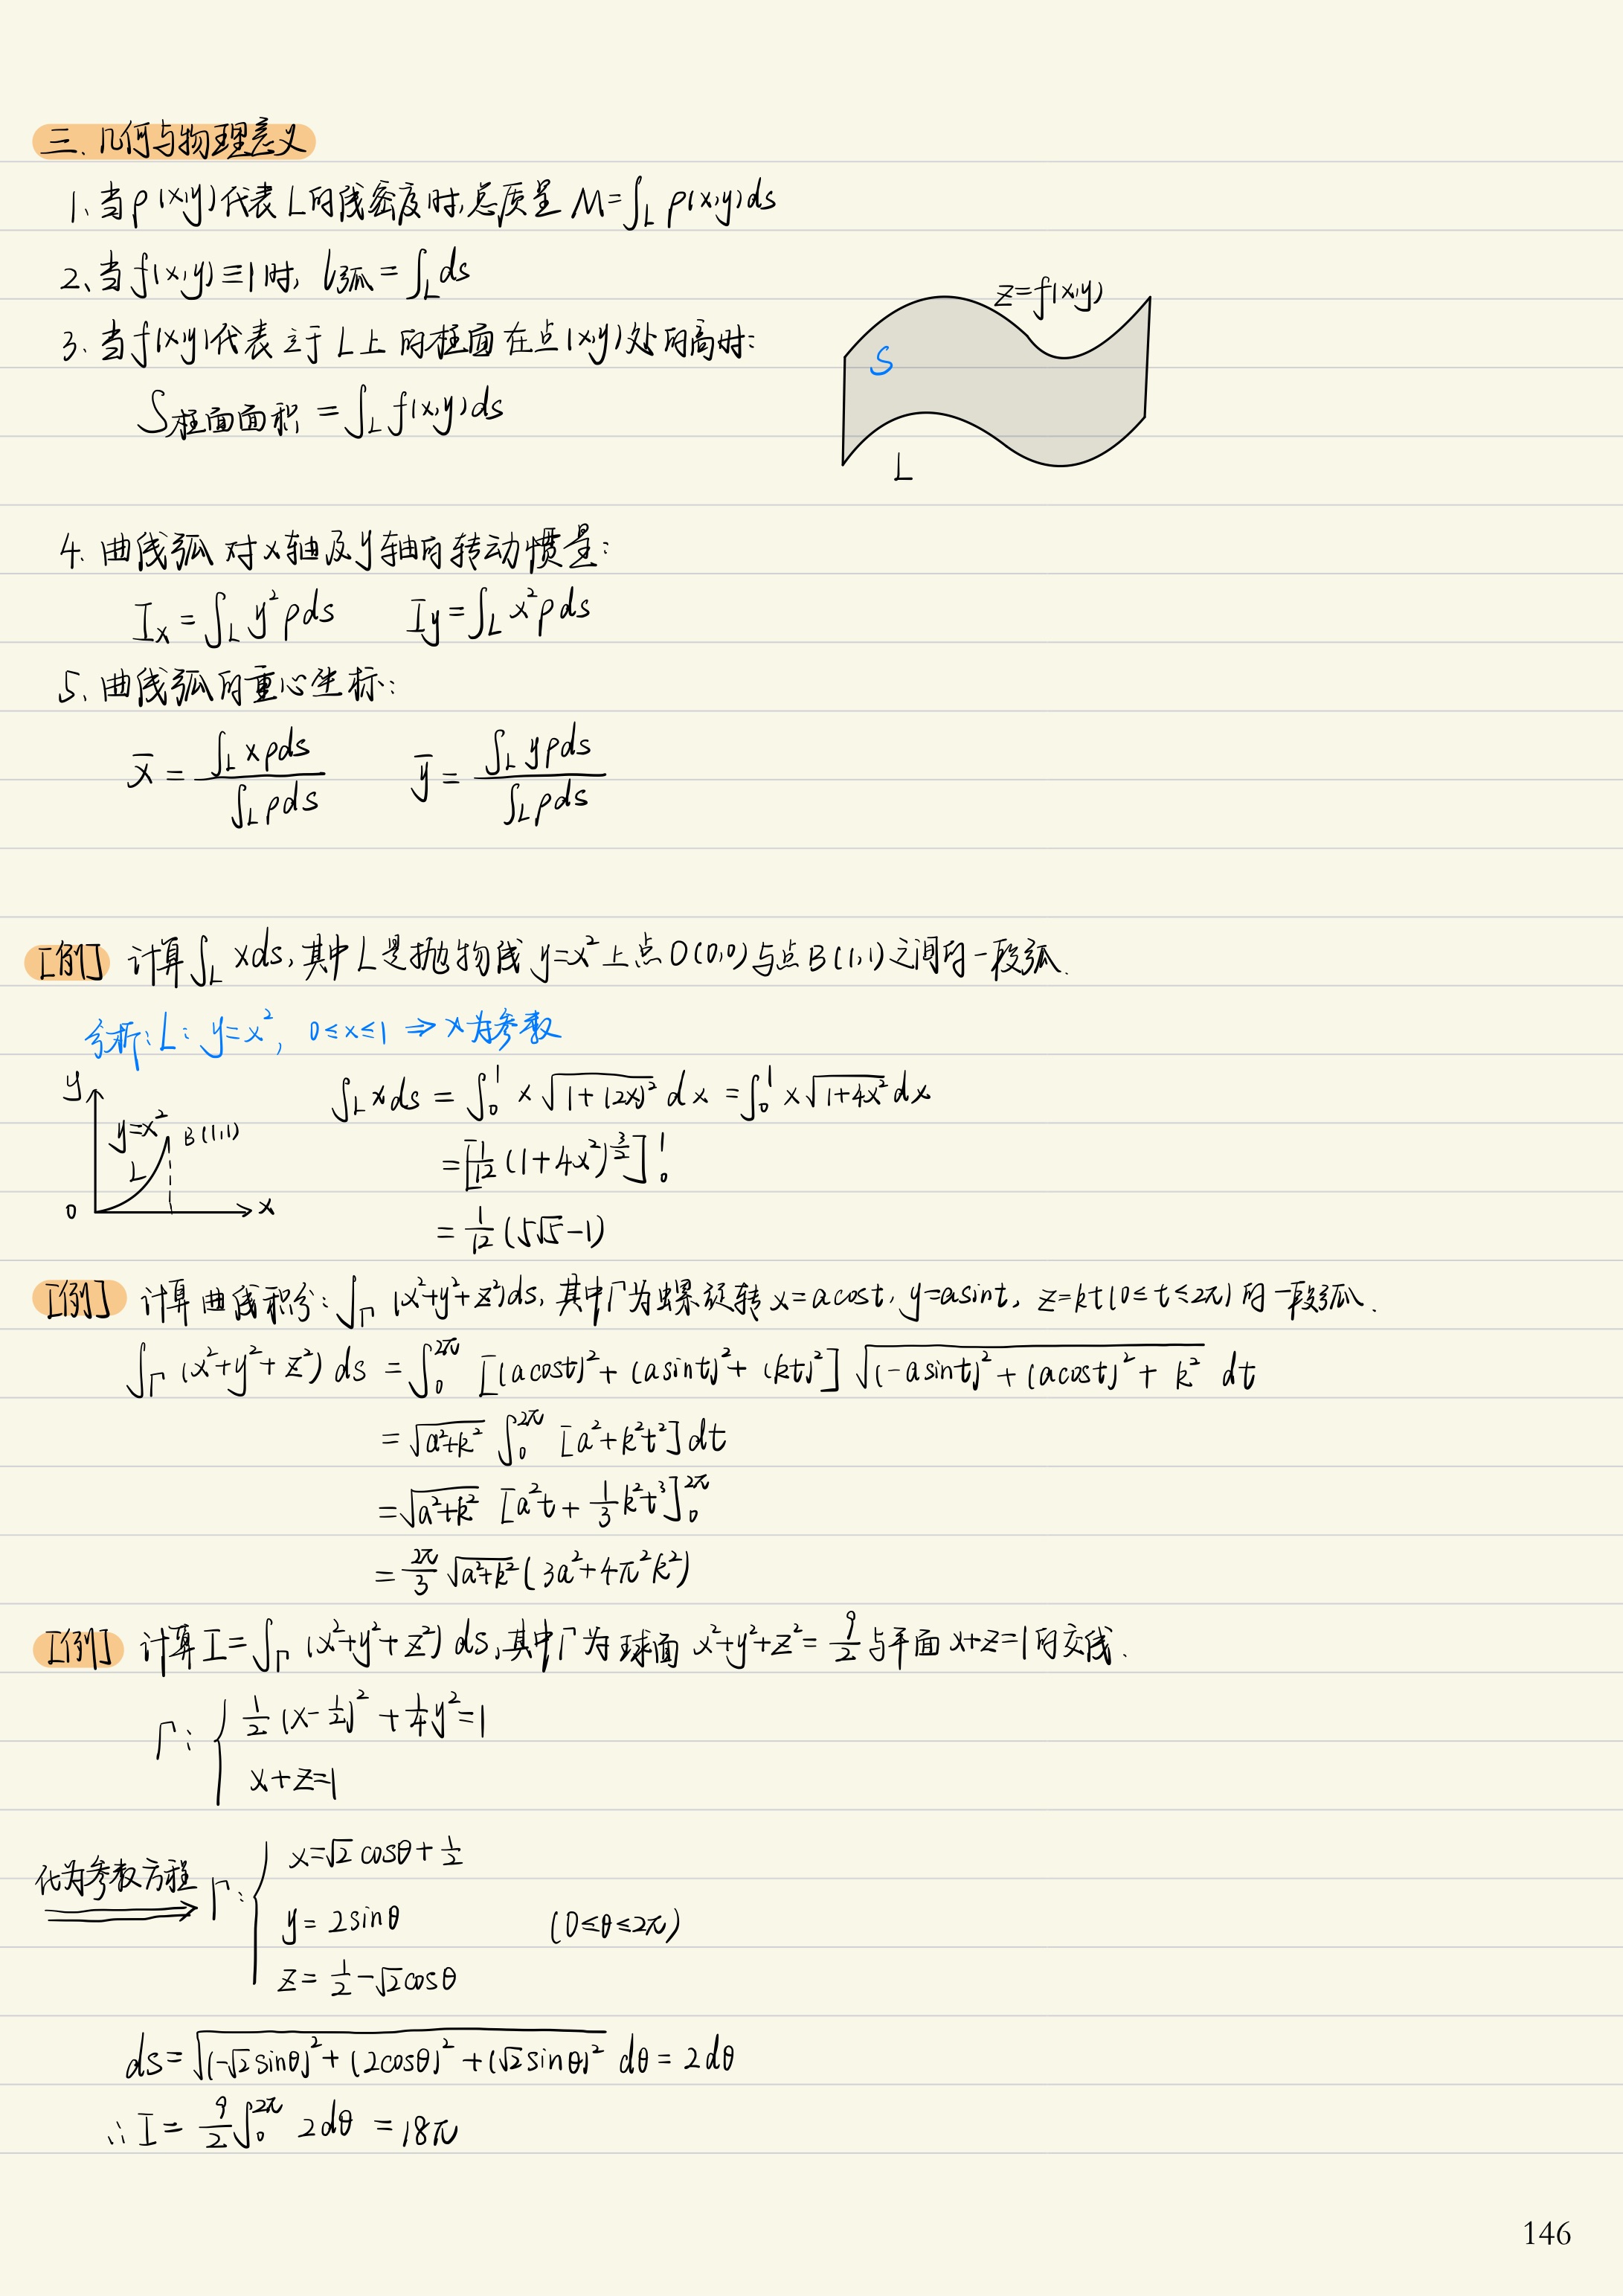 三. 几何与物理意义
1、当ρ(x,y)代表L的线密度时,总质量 M=∫_L ρ(x,y)ds
2、当f(x,y)≡1时, l弧=∫_L ds
3. 当f(x,y)代表立于L上的柱面在点(x,y)处的高时:
S柱面面积 = ∫_L f(x,y)ds
z=f(x,y)
S
L
4. 曲线弧对x轴及y轴的转动惯量:
I_x = ∫_L y²ρds    I_y = ∫_L x²ρds
5. 曲线弧的重心坐标:
x̄ = ∫_L xρds / ∫_L ρds    ȳ = ∫_L yρds / ∫_L ρds
[例] 计算∫_L xds, 其中L是抛物线 y=x² 上点O(0,0)与点B(1,1)之间的一段弧.
分析: L: y=x², 0≤x≤1 ⇒ x为参数
y
y=x²
B(1,1)
L
0
x
∫_L xds = ∫_0^1 x√(1+(2x)²) dx = ∫_0^1 x√(1+4x²) dx
= [1/12 (1+4x²)^(3/2)] |_0^1
= 1/12 (5√5-1)
[例] 计算曲线积分: ∫_Γ (x²+y²+z²)ds, 其中Γ为螺旋转 x=acost, y=asint, z=kt(0≤t≤2π)的一段弧.
∫_Γ (x²+y²+z²) ds = ∫_0^2π [(acost)²+(asint)²+(kt)²] √((-asint)²+(acost)²+k²) dt
= √(a²+k²) ∫_0^2π [a²+k²t²]dt
= √(a²+k²) [a²t + 1/3 k²t³]_0^2π
= 2π/3 √(a²+k²) (3a²+4π²k²)
[例] 计算 I=∫_Γ (x²+y²+z²) ds, 其中Γ为球面 x²+y²+z²=9/2 与平面 x+z=1的交线.
Γ: { 1/2 (x-1/2)² + 1/4 y² = 1
x+z=1
化为参数方程 ⟹ Γ: { x=√2 cosθ + 1/2
y = 2sinθ    (0≤θ≤2π)
z = 1/2 - √2cosθ
ds = √((-√2sinθ)²+(2cosθ)²+(√2sinθ)²) dθ = 2dθ
∴ I = 9/2 ∫_0^2π 2dθ = 18π
146